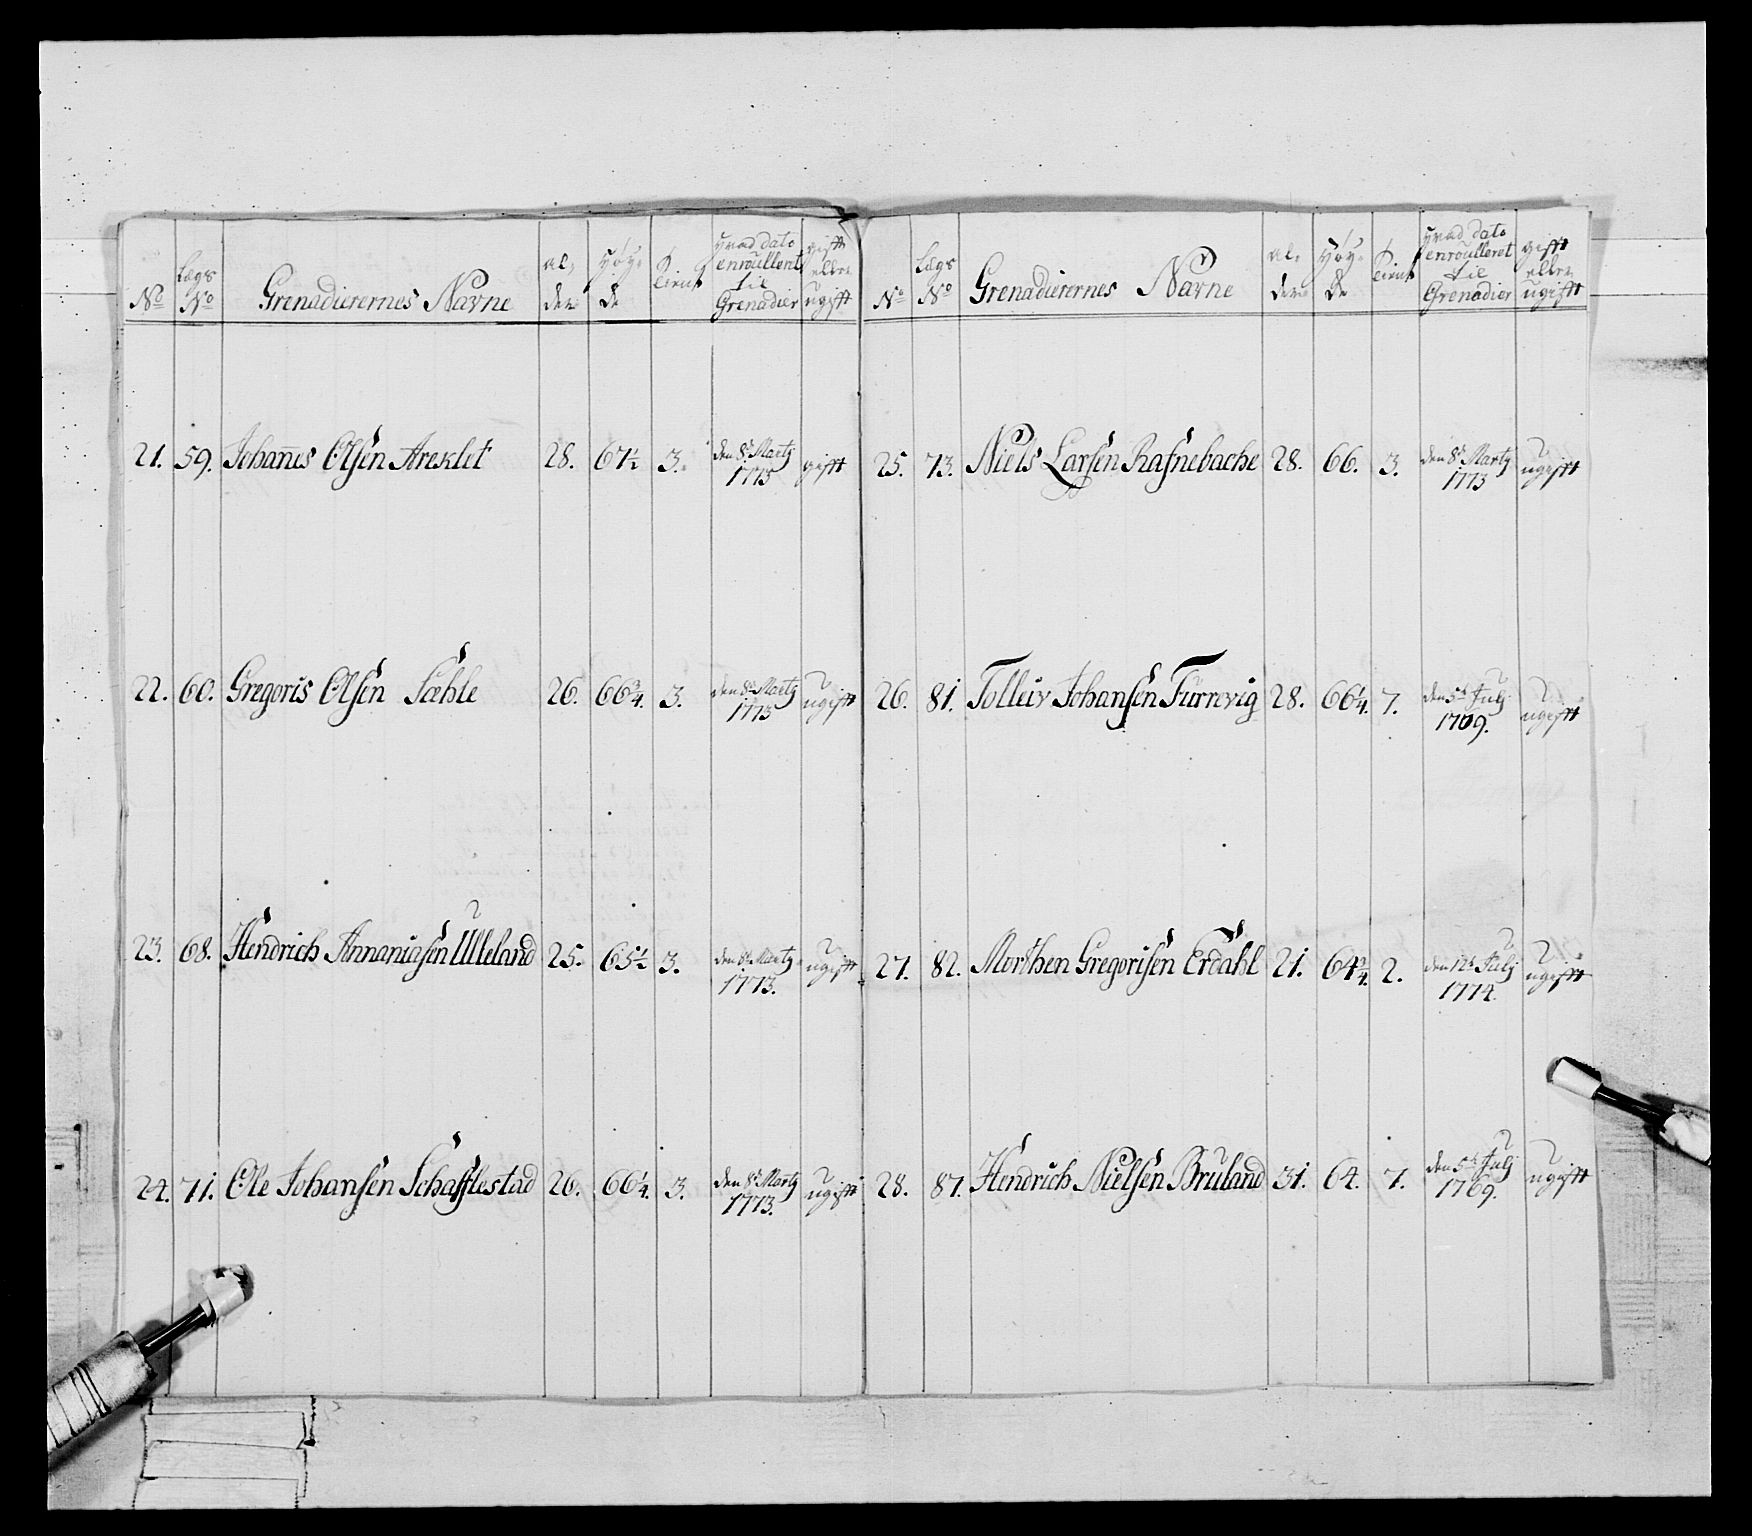 No | Lægs No | Grenadierernes Navne | al, der | Høy, de | tient | Hvad dato enroullert til Grenadier | gifft eller ugifft
21. | 59. | Johanes Olsen Areklet | 28. | 67½ | 3. | den 8de Martj 1773 | gifft
22. | 60. | Gregoris Olsen Sæhle | 26. | 66¾ | 3. | den 8de Martj 1773 | ugifft
23. | 68. | Hendrich Annaniasen Ulleland | 25. | 65½ | 3. | den 8de Martj 1773. | ugifft
24. | 71. | Ole Johansen Schafflestad | 26. | 66¼. | 3. | den 8de Martj 1773. | ugifft
No | Lægs No | Grenadierernes Navne | al, der | Høy, de | tient | Hvad dato enroulleret til Grenadier | gifft eller ugifft
25. | 73. | Niels Larsen Rafnebache | 28. | 66. | 3. | den 8de Martj 1773 | ugifft
26. | 81. | Tolleiv Johansen Furrevig | 28. | 66¼. | 7. | den 5te Julj 1769. | ugifft
27. | 82. | Morthen Gregorisen Erdahl | 21. | 64¾. | 2. | den 12te Julj 1774. | ugifft
28. | 87. | Hendrich Nielsen Bruland | 31. | 64. | 7. | den 5te Julj 1769. | ugifft